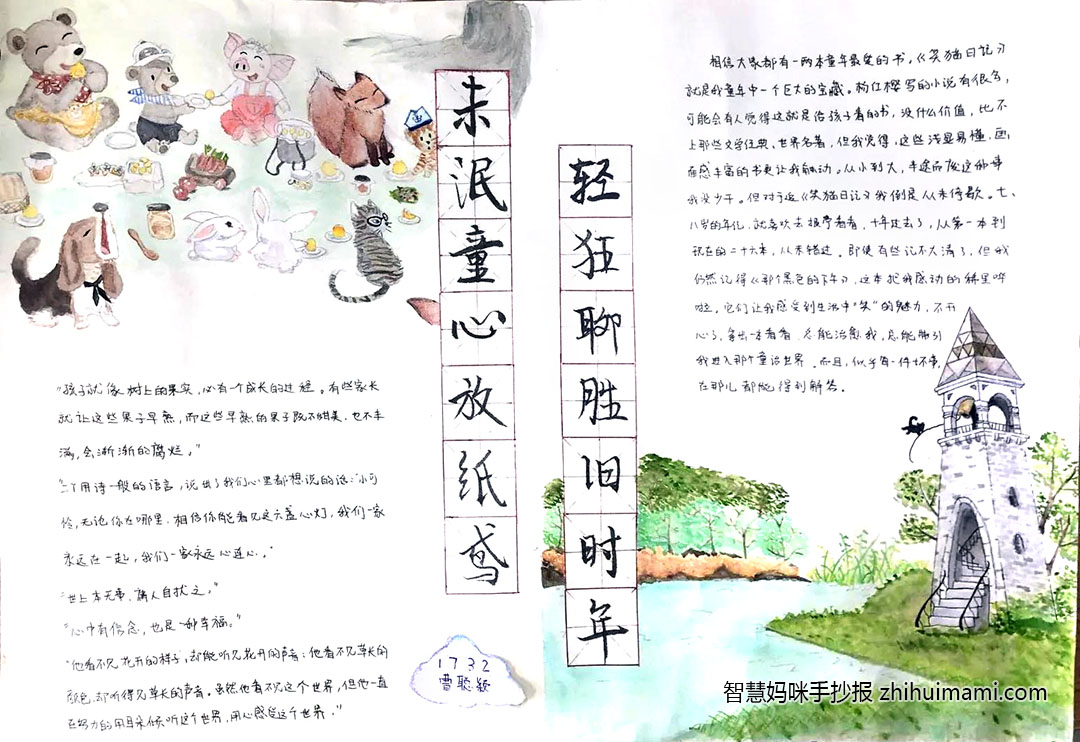 未泯童心放纸鸢
轻狂聊胜旧时年
相信大家都有一两本童年最爱的书，《笑猫日记》
就是我童年中一个巨大的宝藏。杨红樱写的小说有很多，
可能会有人觉得这就是给孩子看的书，没什么价值，比不
上那些文学经典，世界名著，但我觉得，这些浅显易懂，画
面感丰富的书更让我触动。从小到大，半途而废这种事
我没少干。但对于追《笑猫日记》我倒是从未停歇。七、
八岁的年纪，就喜欢去接学看看，十年过去了，从第一本到
现在的二十六本，从未错过。即使有些记不大清了，但我
仍然记得《那个黑色的下午》，这本把我感动的稀里哗
啦。它们让我感受到生活中“笑”的魅力，不开
心了，拿出一本看看，总能治愈我，总能带引
我进入那个童话世界。而且，似乎每一件坏事，
在那儿都能得到解答。
“孩子就像树上的果实，必有一个成长的过程。有些家长
就让这些果子早熟，而这些早熟的果子既不甜美，也不丰
满，会渐渐的腐烂。”
用诗一般的语言，说出了我们心里都想说的话：“小可
怜，无论你在哪里，相信你能看见这六盏心灯，我们一家
永远在一起，我们一家永远心连心。”
“世上本无事，庸人自扰之。”
“心中有信念，也是一种幸福。”
“他看不见花开的样子，却能听见花开的声音；他看不见草长的
颜色，却听得见草长的声音。虽然他看不见这个世界，但他一直
在努力的用耳朵倾听这个世界，用心感受这个世界。”
1732
曹聪颖
智慧妈咪手抄报 zhihuimami.com